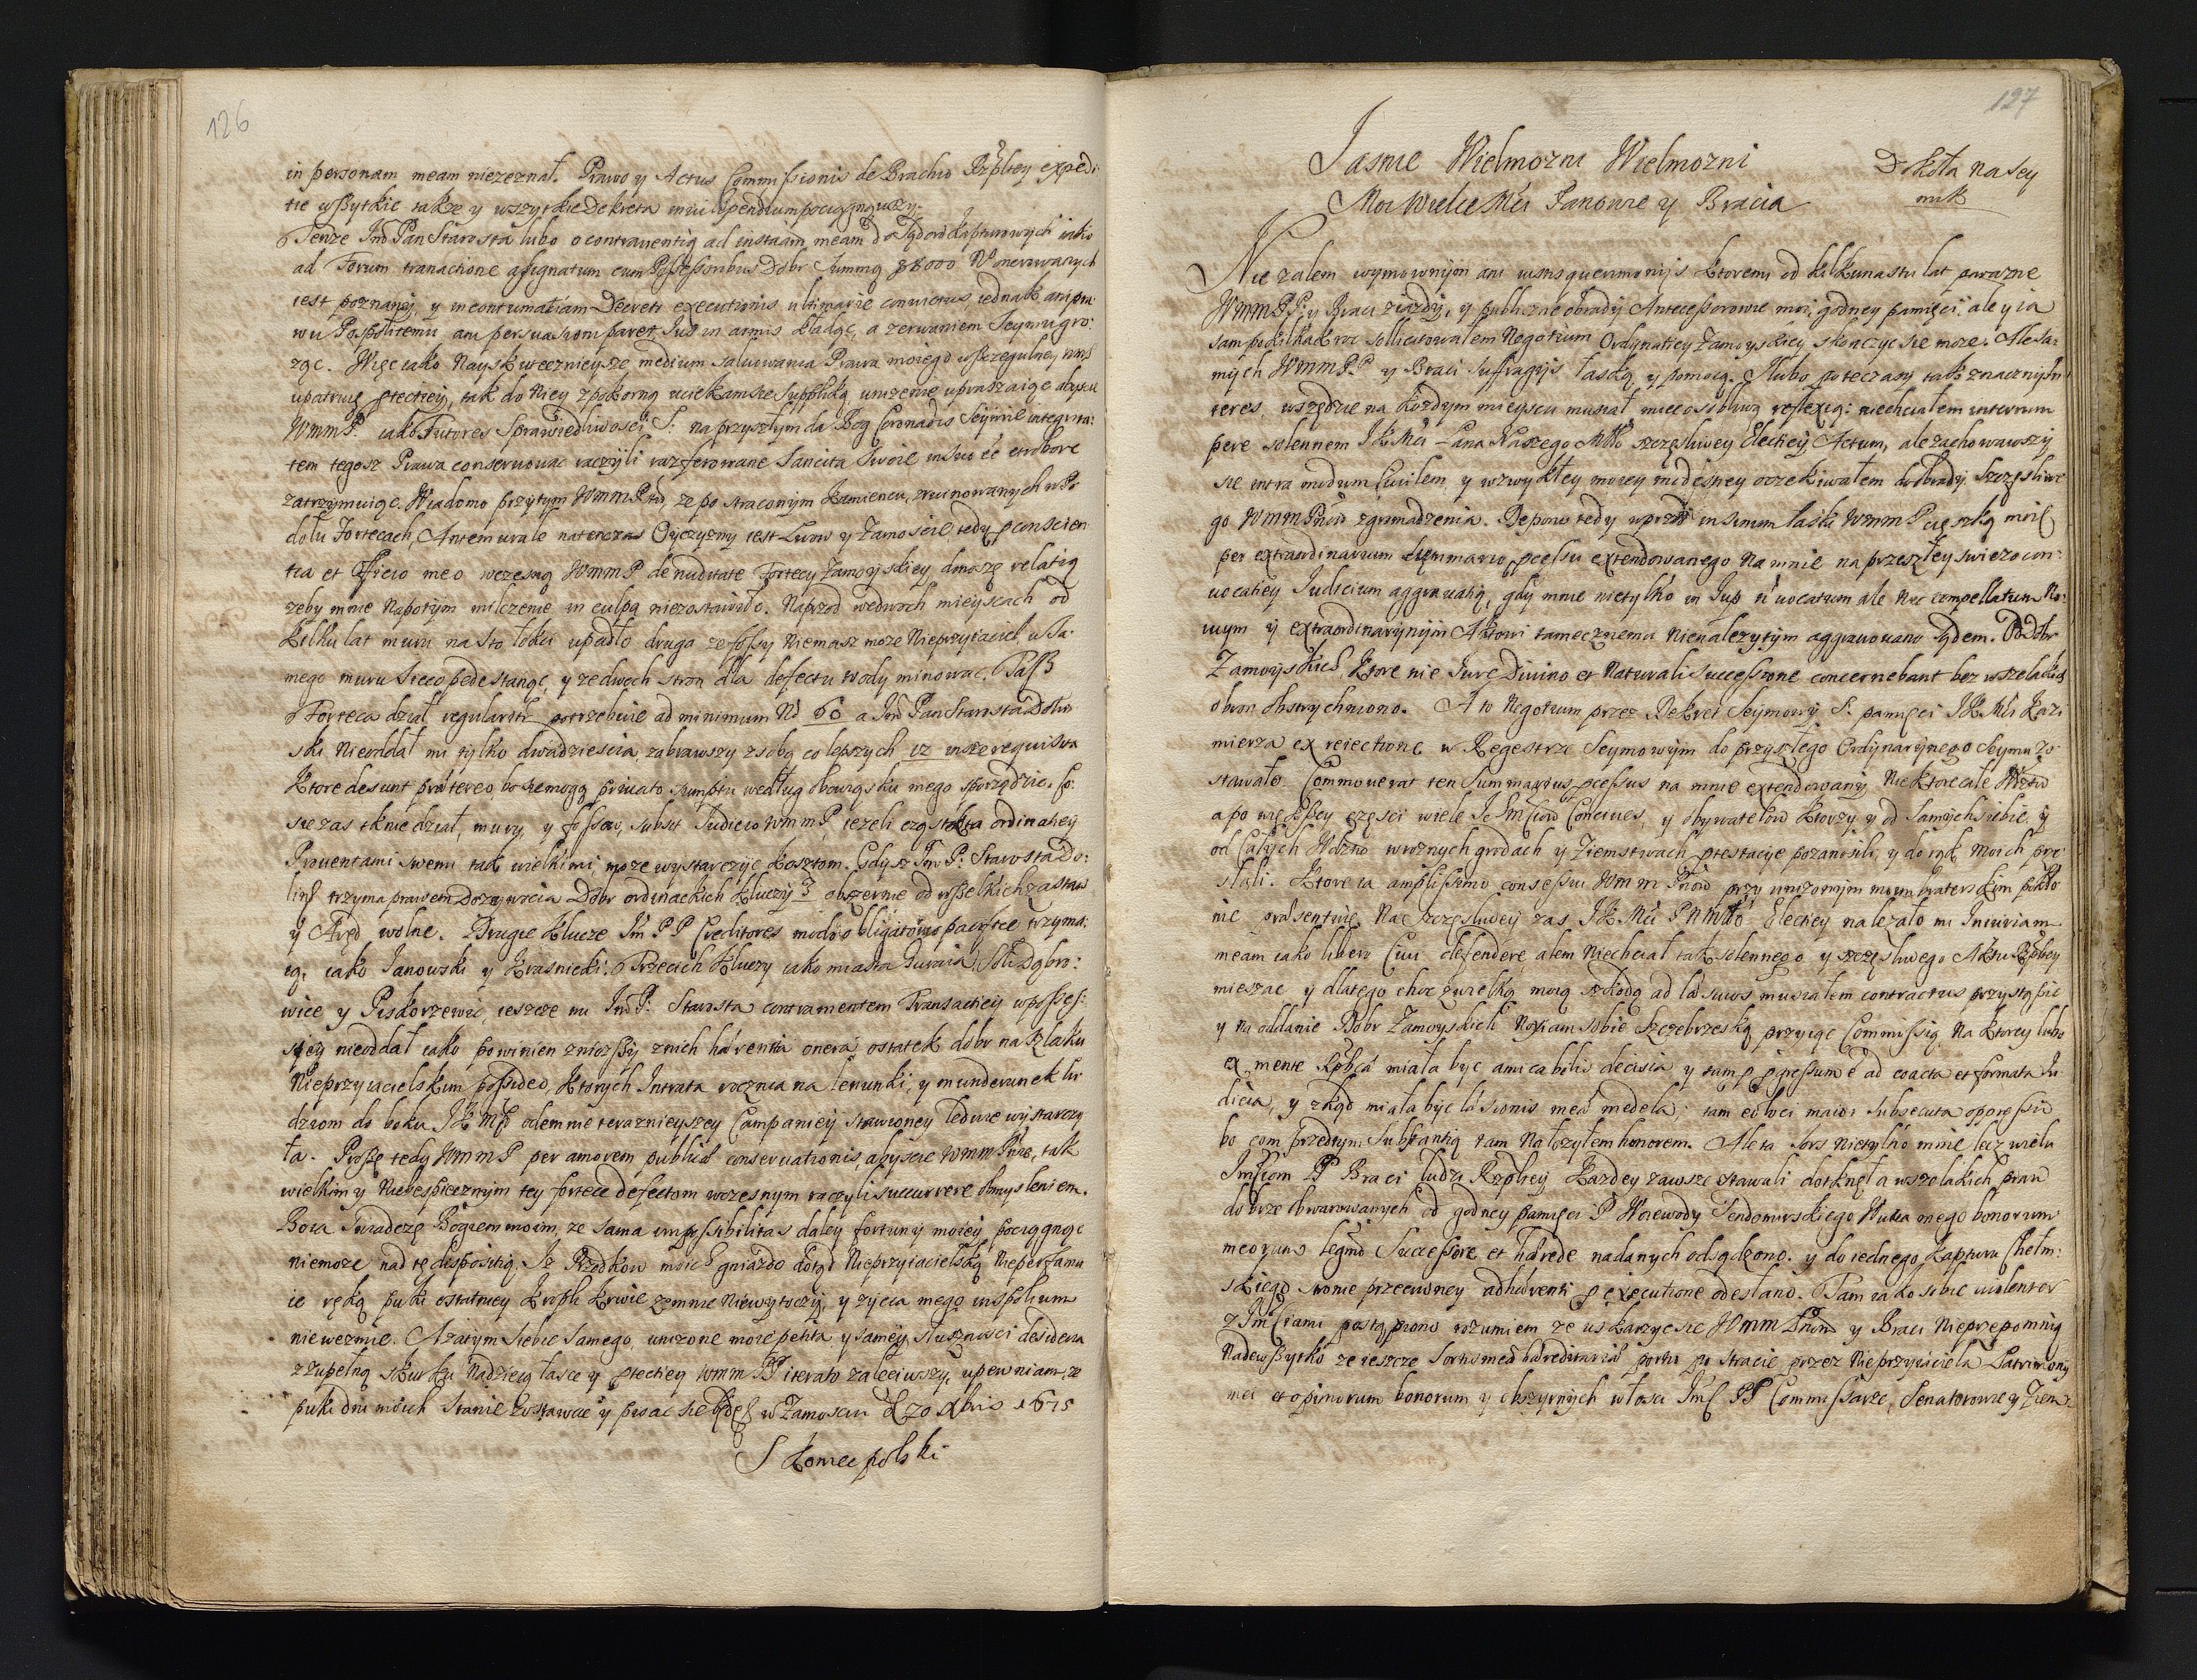 126
in personam meam niezeznał. Prawo y Actus Commissionis de Brachio Rzpltey expedi
tie wszytkie także y wszytkie Dekreta in vilipendium pociągnąwszy.
Tenze Imć Pan Starosta lubo o contraventią ad instantiam meam do Sądow kapturowych iako
ad Forum tranactione assignatum cum Possessoribus Dobr Summą 38000 onerowanych
iest poznany, y in contumatiam Decreti executionis ultimarie convictus iednak ani pra
wu Pospolitemu ani persuasiom paret Ius in armis kładąc, a zerwaniem Seymu gro:
ząc. Więc iako Nayskutecznieysze medium salwowania Prawa moiego w szczegulney
upatruię ptectiey, tak do Niey z pokorną uciekam sie suppliką unizenie upraszaiąc abyscie
WmmP: iako Tutores Sprawiedliwości S: na przyszłym da Bog Coronatis Seymie integrita:
tem tegosz Prawa conservować raczyli razferowane Sancita Swoie in suo ee et robore
zatrzymuiąc. Wiadomo przytym WmmPnw, ze po straconym Kamiencu, zruinowanych w Po
dolu Fortecach, Antemurale natenczas Oyczyzny iest Lwow y Zamoscie, tedy p conscien
tia et Officio meo wczesną WmmP de nuditate Fortecy Zamoyskiey donoszę relatią
zeby mnie Napotym milczenie in culpa niezostawiło. Naprzod wedwoch mieyscach od
kilku lat muru na sto łokci upadło druga ze fossy niemasz moze Nieprzyiaciel u Sa
mego muru Sicco pede stanąć, y ze dwoch stron dla defectu wody minować.
Forteca dział regularitr potrzebuie ad minimum No 60 a Imć Pan Starosta Dolin
ski nieoddał mi tylko dwadziescia, zabrawszy z sobą co lepszych 12 insze requisita
ktore desunt prætereo, bo siemogą privato sumptu według obowiąsku mego sporządzić. Co
sie zas tknie dział, mury, y fossow, subsit Iudicio WmmP iezeli cząstka ordinatiey
Proventami swemi tak wielkimi moze wystarczyć kosztom. Gdysz Imć P: Starosta Do:
linś trzyma prawem Dozywocia Dobr ordinackich kluczy 3 obszernie od wszelkich zastaw
y Aręd wolne. Drugie klucze Im PP Creditores modo obligatorio pacifice trzyma:
ią, iako Janowski y Krasnicki. Trzecich kluczy iako miasta Goraia, Soli Dąbro:
wice y Piskorzewic, ieszcze mi Imć P: Starosta contra mentem Transactiey w posses:
siey nieoddał iako powinien znioszy z nich hærentia onera, ostatek dobr na szlaku
Nieprzyiacielskim possideo, ktorych Intrata roczna na lenunki, y munderunek lu
dziom do boku JKMći odemnie terazniejszey Campaniey stawioney ledwie wystarczy
ła. Proszę tedy WmmP per amorem publicæ conservationis, abyscie WmmPnie, tak
wielkim y Niebespiecznym tey fortece defectom wczesnym raczyli succurrere obmysleniem.
Bom Swiadczę Bogiem moim, ze sama impossibilitas daley fortuny moiey pociągnąć
niemoze nad tę dispositią. Iz Przodkow moich gniazdo dotąd Nieprzyiacielską
ie ręką puki ostatniey kropli krwie zemnie Niewytoczy, y zycia mego in spolium
niewezmie. Azatym siebie samego, unizone moie petita y samey słusznosci desideria
z zupełną skutku Nadzieią łasce y ptectiey WmmPP iterato zaleciwszy, upewniam, ze
puki dni moich stanie zostawac y pisac sie będę w Zamosciu d 20 xbris 1675
S Koniecpolski
127
Jasnie Wielmozni Wielmozni
Moi Wielce Mći Panowie y Bracia
Dokoła na sey
mik
Nie zalem wymownym ani iustis querimonijs ktoremi od kilkunastu lat parazne
WmmPP: y Braci ziazdy, y publiczne obrady Antecessorowie moi godney pamięci ale y ia
sam pokilkakroc sollicitowałem Negotium Ordynatiey Zamoyskiey skonczyc sie moze. Ale sa:
mych WmmPP y Braci suffragijs łaską y pomocą. A lubo po teczasy tak znaczny In
teres, wszędzie na kozdym mieyscu musiał miec osobliwą reflexią: niechciałem interrum
pere solennem JKMći Pana Naszego Młło szczęsliwey Electiey Actum, ale zachowawszy
sie intra modum Civilem y wzwykłey moiey modestiey oczekiwałem do obrady szczęsliwe
go WmmPnow zgromadzenia. Depono tedy uprzod in sinum łaski WmmP cięszką moię
per extraordinarium summario pcessu extendowanego na mnie na przeszłey swiezo con:
vocatiey Iudicium aggravatią, gdy mnie nietylko in Ius n vocatum ale Nec compellatum No:
wym y extraordinaryinym Aktowi tamecznemu nienalezytym aggravowano sądem. Do Dobr
Zamoyskich, ktore nie Iure Divino et Naturali successione concernebant bez wszelakich
obron obstrychniono. A to Negotium przez Dekret Seymowy S: pamięci JKMći Kazi
mierza ex reiectione w Regestrze Seymowym do przyszłego Ordynaryinego Seymu zo
stawało. Commoverat ten summarius pcessus na mnie extendowany Niektore całe
a po więkssey części wiele Ichmciow Concives, y obywatelow ktorzy y od samych siebie y
od całych Wdztw w roznych grodach y Ziemstwach ptestacye pozanosili, y do rąk moich prze
słali. Ktore ia amplissimo consessui WmmPnow przy unizonym moim braterskim pokło
nie præsentuię. Na szczęsliwey zas JKMći PNMło Electiey nalezało mi Iniuriam
meam iako libero Civi defendere alem niechciał tak solennego y szczęsliwego Aktu Rzpltey
mieszac y dlatego choc z wielką moią szkodą ad læsivos musiałem contractus przystąpic
y na oddanie Dobr Zamoyskich Noxiam sobie Szczebrzeską przyiąc Commissią, Na ktorey lubo
ex mente Rzptcæ miała byc amicabilis decisia y tam p pgressum e ad coacta et formata Iu
dicia, y zkąd miała byc læsionis meæ medela; tam ei loci maior subsecuta oppressio
bo com przedtym substantią tam Nałozyłem honorem. Ale ta sors nietylko mnie lecz wielu
Imciom PP Braci ludzi Rzpltey kazdey zawsze stawali dotknęła wszelakich praw
dobrze obwarowanych od godney pamięci P Woiewody Sendomirskiego Wuia mego bonorum
meorum legmo Successore et hærede nadanych odsądzono, y do iednego kaptura Chełm:
skiego stronie przeciwney adhærenti p executione odesłano. Tam iako sobie violenter
z Imćiami postąpiono rozumiem ze uskarzyc sie WmmPnow y Braci Nieprzepomnią
Nadewszytko ze ieszcze sortis meæ hæreditariæ po stracie przez Nieprzyiaciela Patrimony
mei et opimorum bonorum y obszyrnych włosci Imć PP Commissarze, Senatorowie y Ziem: